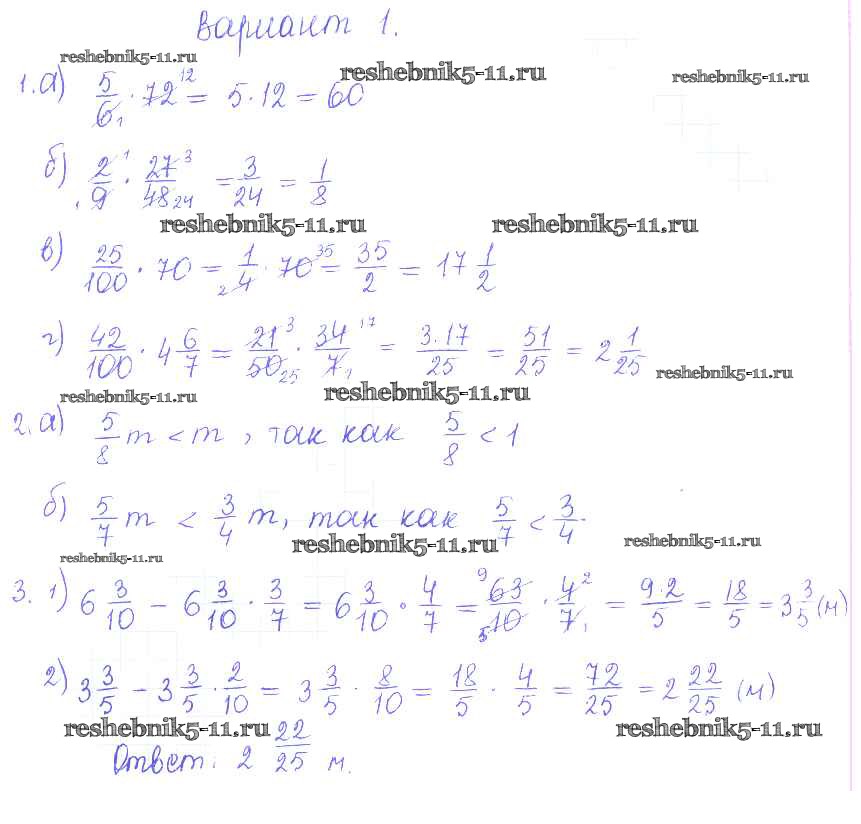 Вариант 1.
reshebnik5-11.ru reshebnik5-11.ru reshebnik5-11.ru
1. а) 5/6₁ · 72¹² = 5·12 = 60
б) 2¹/₁9 · 27³/48₂₄ = 3/24 = 1/8
reshebnik5-11.ru reshebnik5-11.ru
в) 25/100 · 70 = 1/₂4 · 70³⁵ = 35/2 = 17 1/2
г) 42/100 · 4 6/7 = 21³/50₂₅ · 34¹⁷/7₁ = 3.17/25 = 51/25 = 2 1/25
reshebnik5-11.ru reshebnik5-11.ru reshebnik5-11.ru
2. а) 5/8 m < m, так как 5/8 < 1
б) 5/7 m < 3/4 m, так как 5/7 < 3/4.
reshebnik5-11.ru reshebnik5-11.ru reshebnik5-11.ru
3. 1) 6 3/10 − 6 3/10 · 3/7 = 6 3/10 · 4/7 = ⁹63/₅10 · 4²/7₁ = 9·2/5 = 18/5 = 3 3/5 (м)
2) 3 3/5 − 3 3/5 · 2/10 = 3 3/5 · 8/10 = 18/5 · 4/5 = 72/25 = 2 22/25 (м)
reshebnik5-11.ru reshebnik5-11.ru
Ответ: 2 22/25 м.